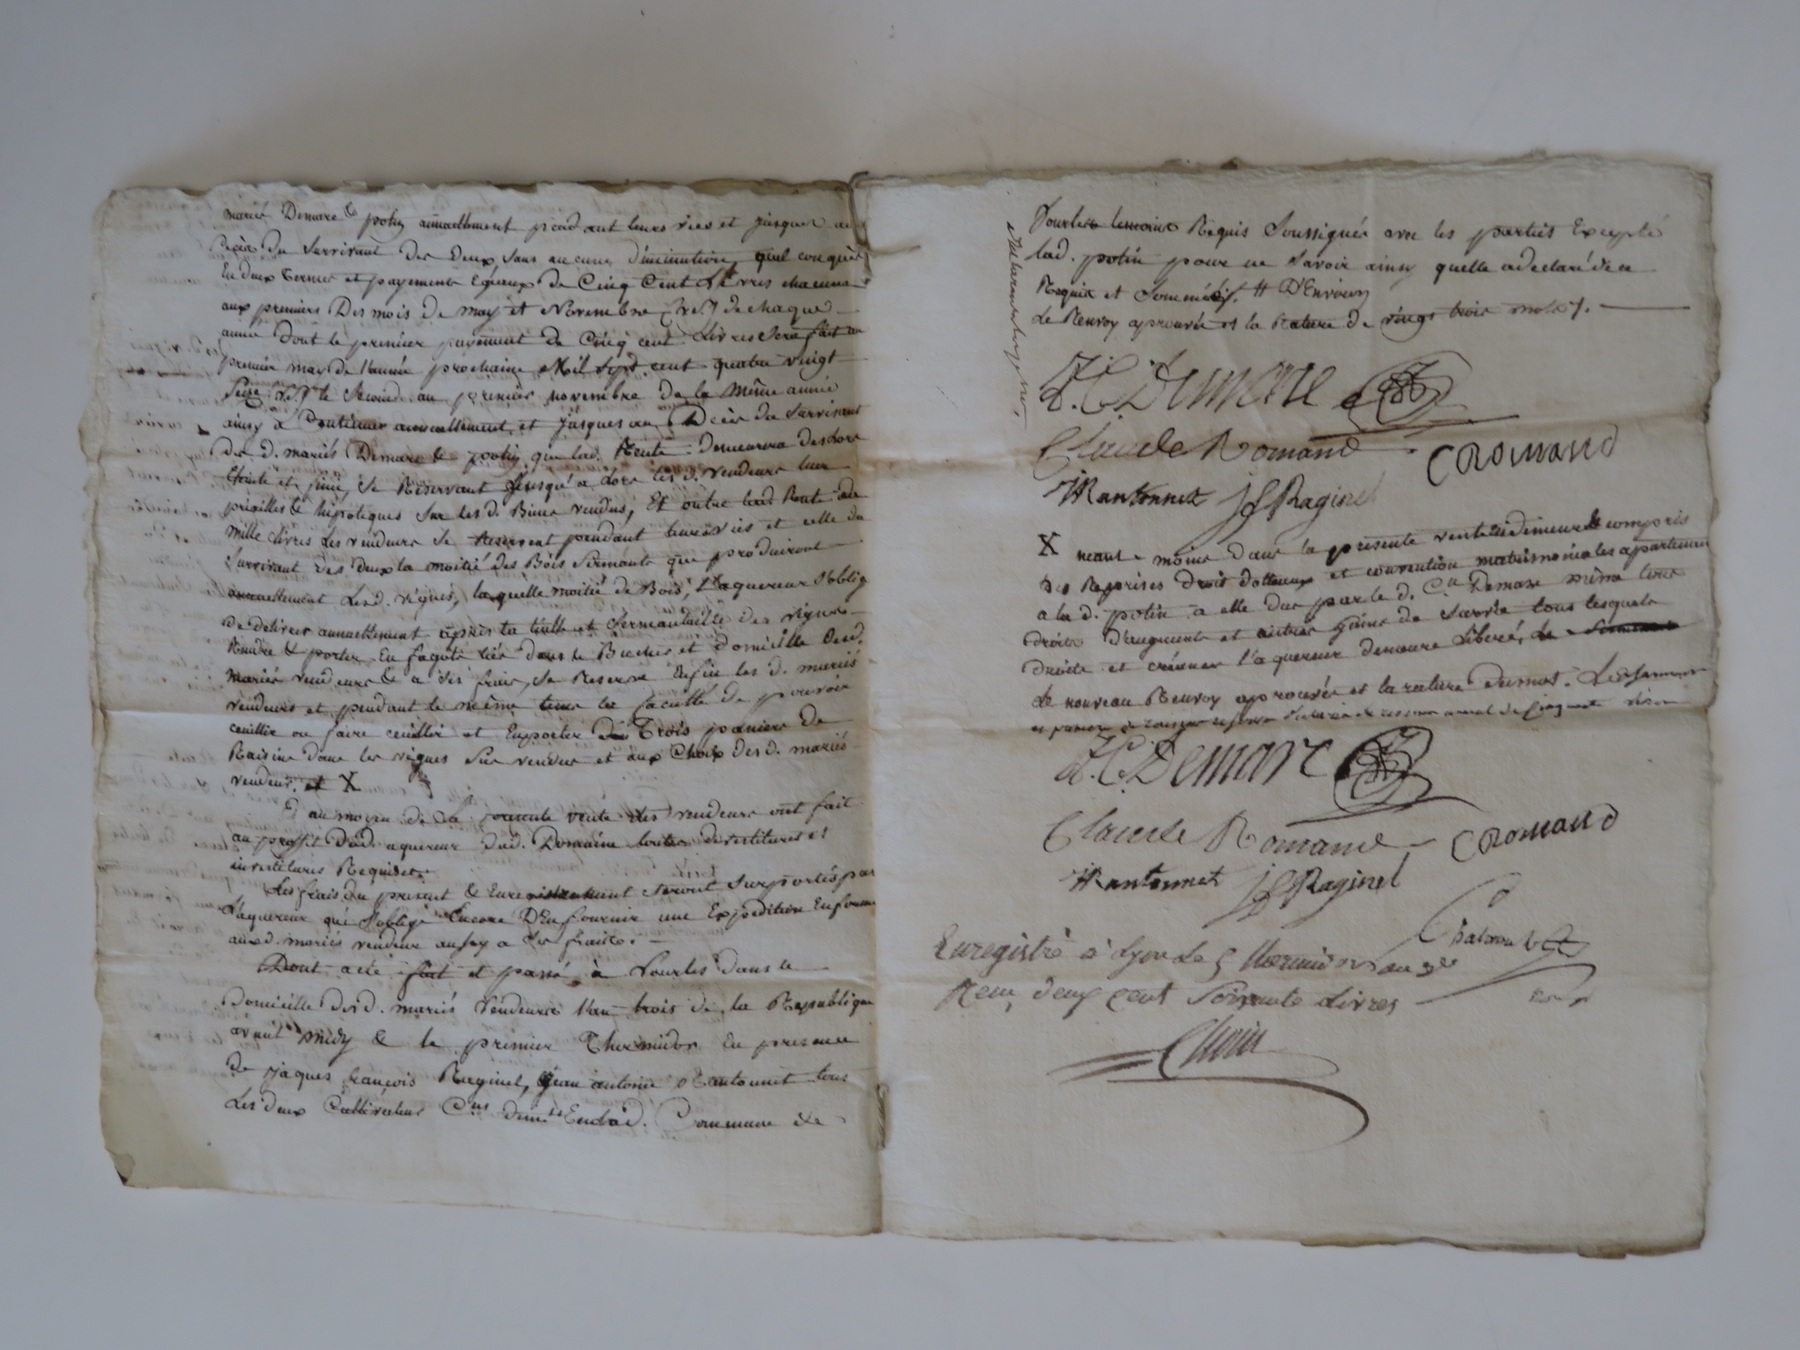 mariés Demare & potin annuellement pendant leurs vies et jusques au
décès du Survivant des Deux, sans aucune diminution quelconque
En deux termes et payements Egaux de Cinq Cent Livres chacun
aux premiers Des mois de may et Novembre de chaque
année dont le premier payement de Cinq cent Livres Sera fait au
premier may de l'année prochaine Mil Sept cent quatre vingt
Seize le Second au premier novembre de la Même année
ainsy a Continuer annuellement et jusques au Décès du Survivant
des d. mariés Demare & potin que lad. Rente demeurera deslors
Eteinte et finie, Se Reservant jusqu'a lors les d. vendeurs leur
privilles & hipoteques Sur les d. Biens vendus, Et outre lad Rente de
Mille Livres Les vendeurs Se reservent pendant leurs vies et celle du
Survivant des deux la moitié des Bois Sermants que produiront
annuellement Lesd. vignes, laquelle moitié de Bois, l'aquereur S'oblige
de delivrer annuellement après la taille et Sermantaille des vignes
Rendre & porter En fagots liés dans le Bucher et domicille desd.
Mariés vendeurs & a ses frais, Se Reserve Enfin les d. mariés
vendeurs et pendant le même tems la faculté de pouvoir
ceuillir ou faire ceuillir et Emporter Trois paniers de
Raisins dans les vignes Sus vendus et aux Choix desd. mariés
vendeurs, et X
Et au moyen de la presente vente les vendeurs ont fait
au proffit dud. aquereur dud. Domaine toutes devestitures et
investitures Requises.
Les frais du present & Enregistrement Seront Suportés par
l'aquereur qui S'oblige Encore D'En fournir une Expedition En forme
auxd. mariés vendeurs aussy a Ses frais.
Dont acte fait et passé à Sourles dans le
Domicille desd. mariés Vendeurs l'an trois de la Republique
avant midy & le premier Thermidor En presence
de Jaques françois Raginel, Jean antoine Mantonnet tous
Les deux Cultivateurs Cns demts Enlad. Commune de
Sourles temoins Requis Soussignés avec les parties Excepté
lad. potin pour ne Savoir ainsy quelle a declaré de ce
Requis et Sommé
Le Renvoy aprouvée et la Rature de vingt trois mots.
Demare
Claude Romand CROMAND
Mantonnet Raginel
X neant-moins dans la presente vente compris
Des Reprises droit dotteaux et convention matrimoniales apartenant
a lad. potin a elle due par le d. Cn Demare même tous
droits d'augment et autres gains de Survie tous lesquels
droits et créances l'aquereur demeure Liberé,
Le nouveau Renvoy aprouvée et la rature
Demare
Claude Romand CROMAND
Mantonnet Raginel
Enregistré à Lyon Le 5 thermidor an 3e
Reçu deux cent Soixante Livres